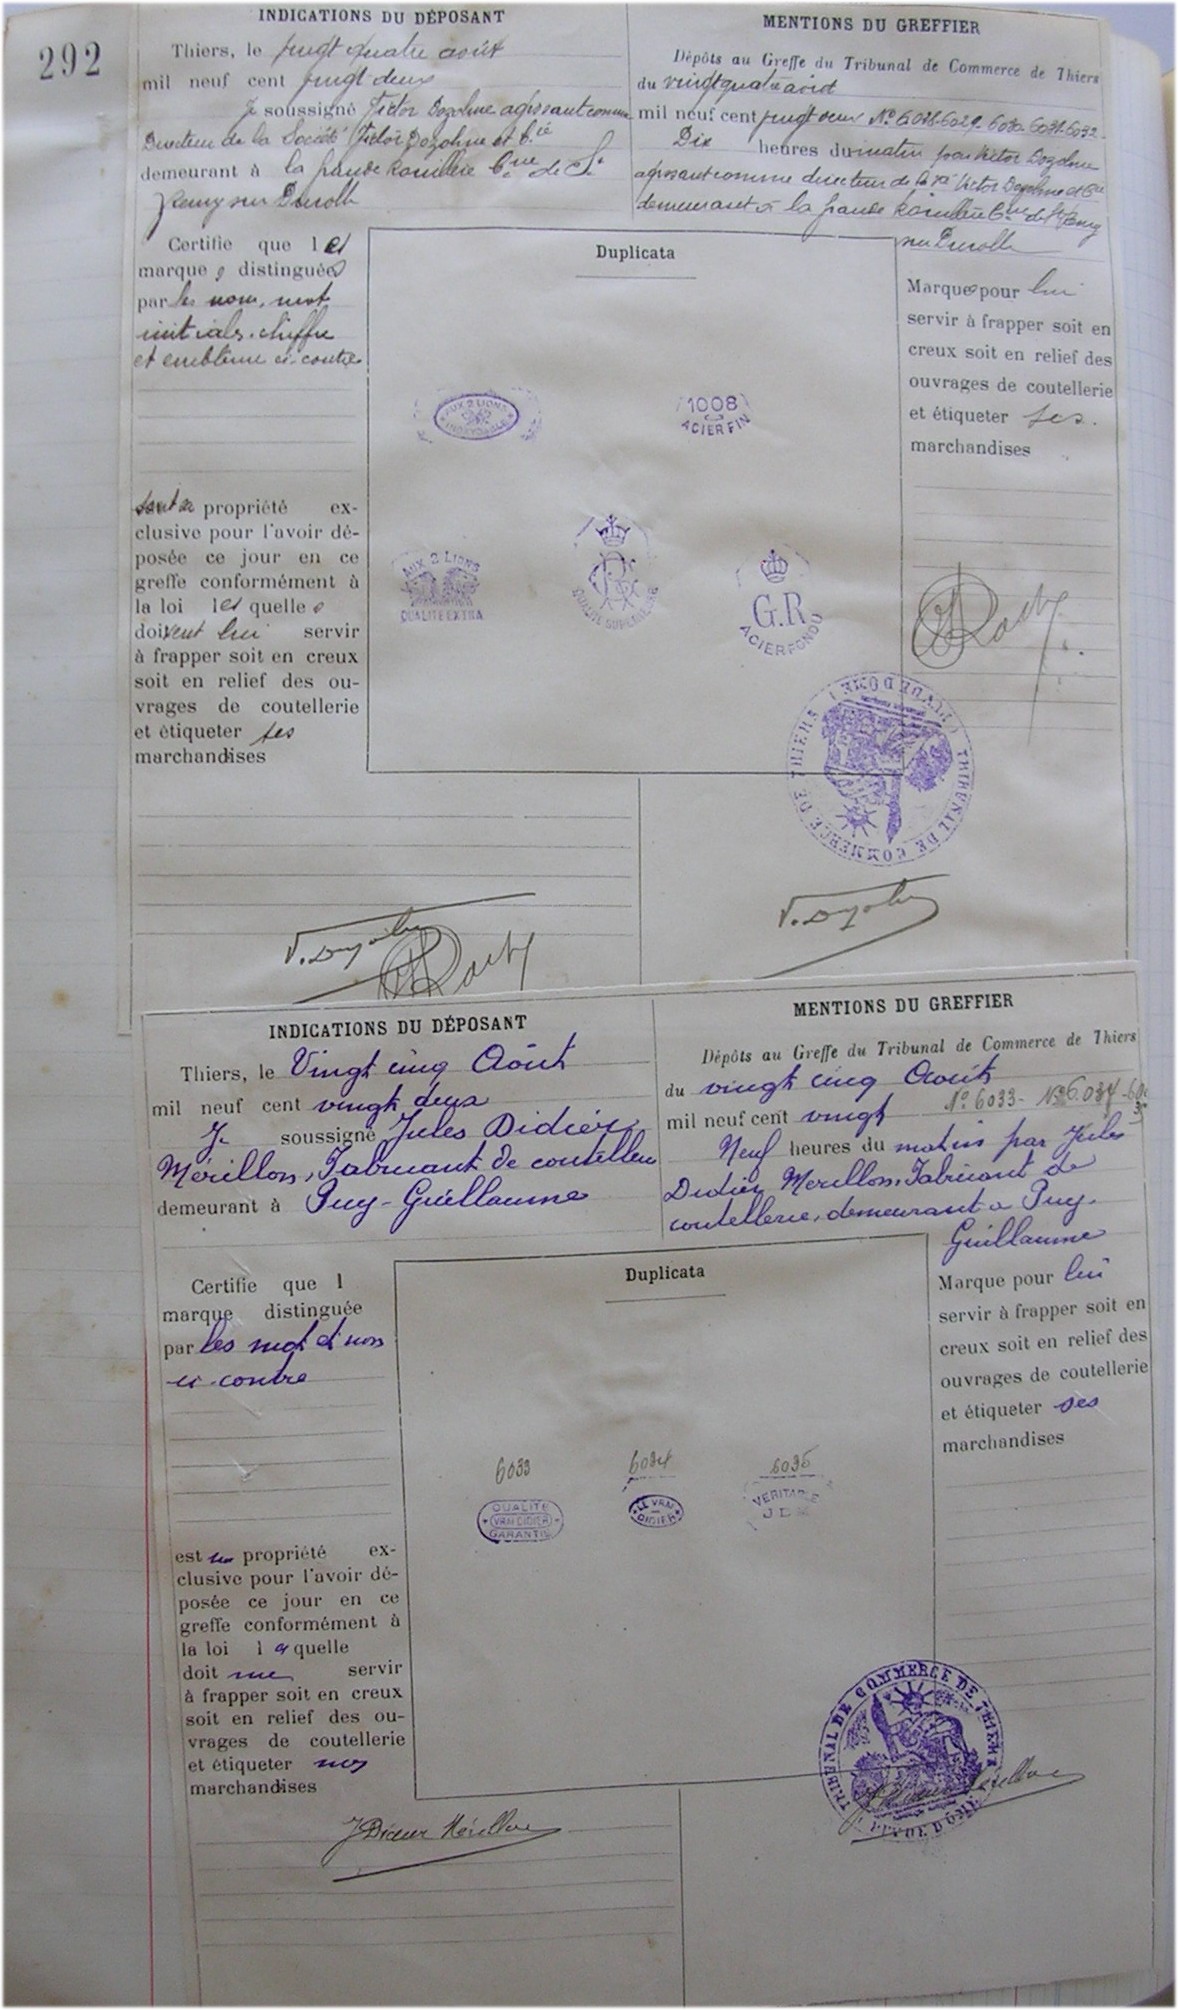 292
INDICATIONS DU DÉPOSANT
Thiers, le vingt quatre août
mil neuf cent vingt deux
Je soussigné Victor Dozolme agissant comme
Directeur de la Société Victor Dozolme et Cie
demeurant à la grande Ramillerie Cne de St
Remy sur Durolle
MENTIONS DU GREFFIER
Dépôts au Greffe du Tribunal de Commerce de Thiers
du vingt quatre août
mil neuf cent vingt deux Nos 6028-6029-6030-6031-6032-
Dix heures du matin par Victor Dozolme
agissant comme directeur de la Sté Victor Dozolme et Cie
demeurant à la grande Ramillerie Cne de St Remy
sur Durolle
Certifie que les
marques distinguées
par les nom, mot
initiales, chiffre
et emblème ci-contre
sont sa propriété ex-
clusive pour l'avoir dé-
posée ce jour en ce
greffe conformément à
la loi lesquelles
doivent lui servir
à frapper soit en creux
soit en relief des ou-
vrages de coutellerie
et étiqueter ses
marchandises
Duplicata
AUX 2 LIONS
INOXYDABLE
1008
ACIER FIN
AUX 2 LIONS
QUALITE EXTRA
QUALITE SUPERIEURE
G.R
ACIER FONDU
Marques pour lui
servir à frapper soit en
creux soit en relief des
ouvrages de coutellerie
et étiqueter ses.
marchandises
TRIBUNAL DE COMMERCE DE THIERS
(PUY DE DOME)
V. Dozolme
V. Dozolme
INDICATIONS DU DÉPOSANT
Thiers, le Vingt cinq Août
mil neuf cent vingt deux
Je soussigné Jules Didier
Mérillon, Fabricant de coutellerie
demeurant à Puy-Guillaume
MENTIONS DU GREFFIER
Dépôts au Greffe du Tribunal de Commerce de Thiers
du vingt cinq Août
mil neuf cent vingt No 6033- No 6034-6035
Neuf heures du matin par Jules
Didier Merillon, Fabricant de
coutellerie, demeurant à Puy-
Guillaume
Certifie que l
marque distinguée
par les mot et nom
ci-contre
est ma propriété ex-
clusive pour l'avoir dé-
posée ce jour en ce
greffe conformément à
la loi laquelle
doit me servir
à frapper soit en creux
soit en relief des ou-
vrages de coutellerie
et étiqueter mes
marchandises
Duplicata
6033 6034 6035
QUALITE
VRAI DIDIER
GARANTIE
LE VRAI
DIDIER
VERITABLE
J D M
Marque pour lui
servir à frapper soit en
creux soit en relief des
ouvrages de coutellerie
et étiqueter ses
marchandises
TRIBUNAL DE COMMERCE DE THIERS
PUY DE DOME
J Didier Mérillon